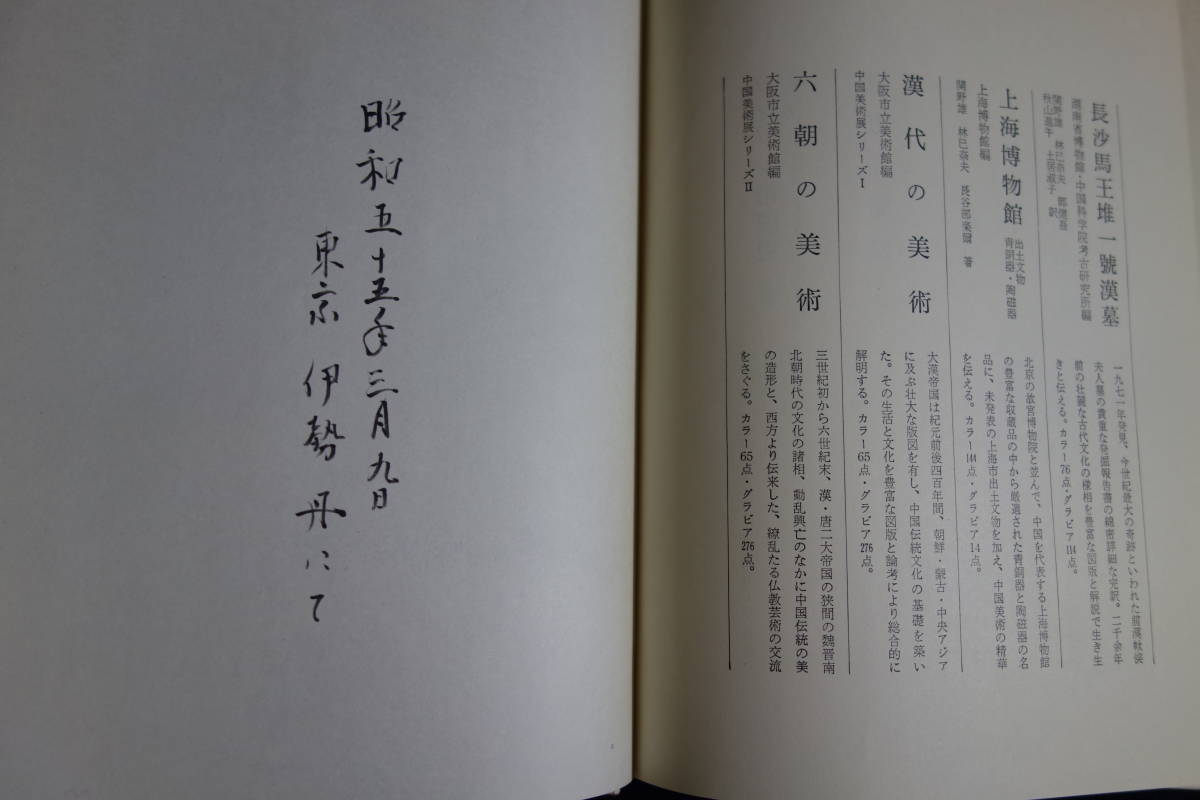 長沙馬王堆一號漢墓
湖南省博物館・中国科学院考古研究所編
関野雄 林巳奈夫
秋山進午 土居淑子 訳
一九七一年発見、今世紀最大の奇跡といわれた前漢軑侯
夫人墓の貴重な発掘報告書の綿密詳細な完訳。二千余年
前の壮麗な古代文化の様相を豊富な図版と解説で生き生
きと伝える。カラー76点・グラビア114点。
上海博物館 出土文物
青銅器・陶磁器
上海博物館編
関野雄 林巳奈夫 長谷部楽爾 著
北京の故宮博物院と並んで、中国を代表する上海博物館
の豊富な収蔵品の中から厳選された青銅器と陶磁器の名
品に、未発表の上海市出土文物を加え、中国美術の精華
を伝える。カラー144点・グラビア14点。
漢代の美術
大阪市立美術館編
中国美術展シリーズⅠ
大漢帝国は紀元前後四百年間、朝鮮・蒙古・中央アジア
に及ぶ壮大な版図を有し、中国伝統文化の基礎を築い
た。その生活と文化を豊富な図版と論考により総合的に
解明する。カラー65点・グラビア276点。
六朝の美術
大阪市立美術館編
中国美術展シリーズⅡ
三世紀初から六世紀末、漢・唐二大帝国の狭間の魏晋南
北朝時代の文化の諸相、動乱興亡のなかに中国伝統の美
の造形と、西方より伝来した、繚乱たる仏教芸術の交流
をさぐる。カラー65点・グラビア276点。
昭和五十五年三月九日
東京伊勢丹にて